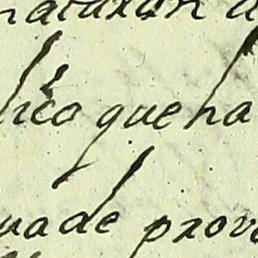 naturan a
lico que ha
uade prov